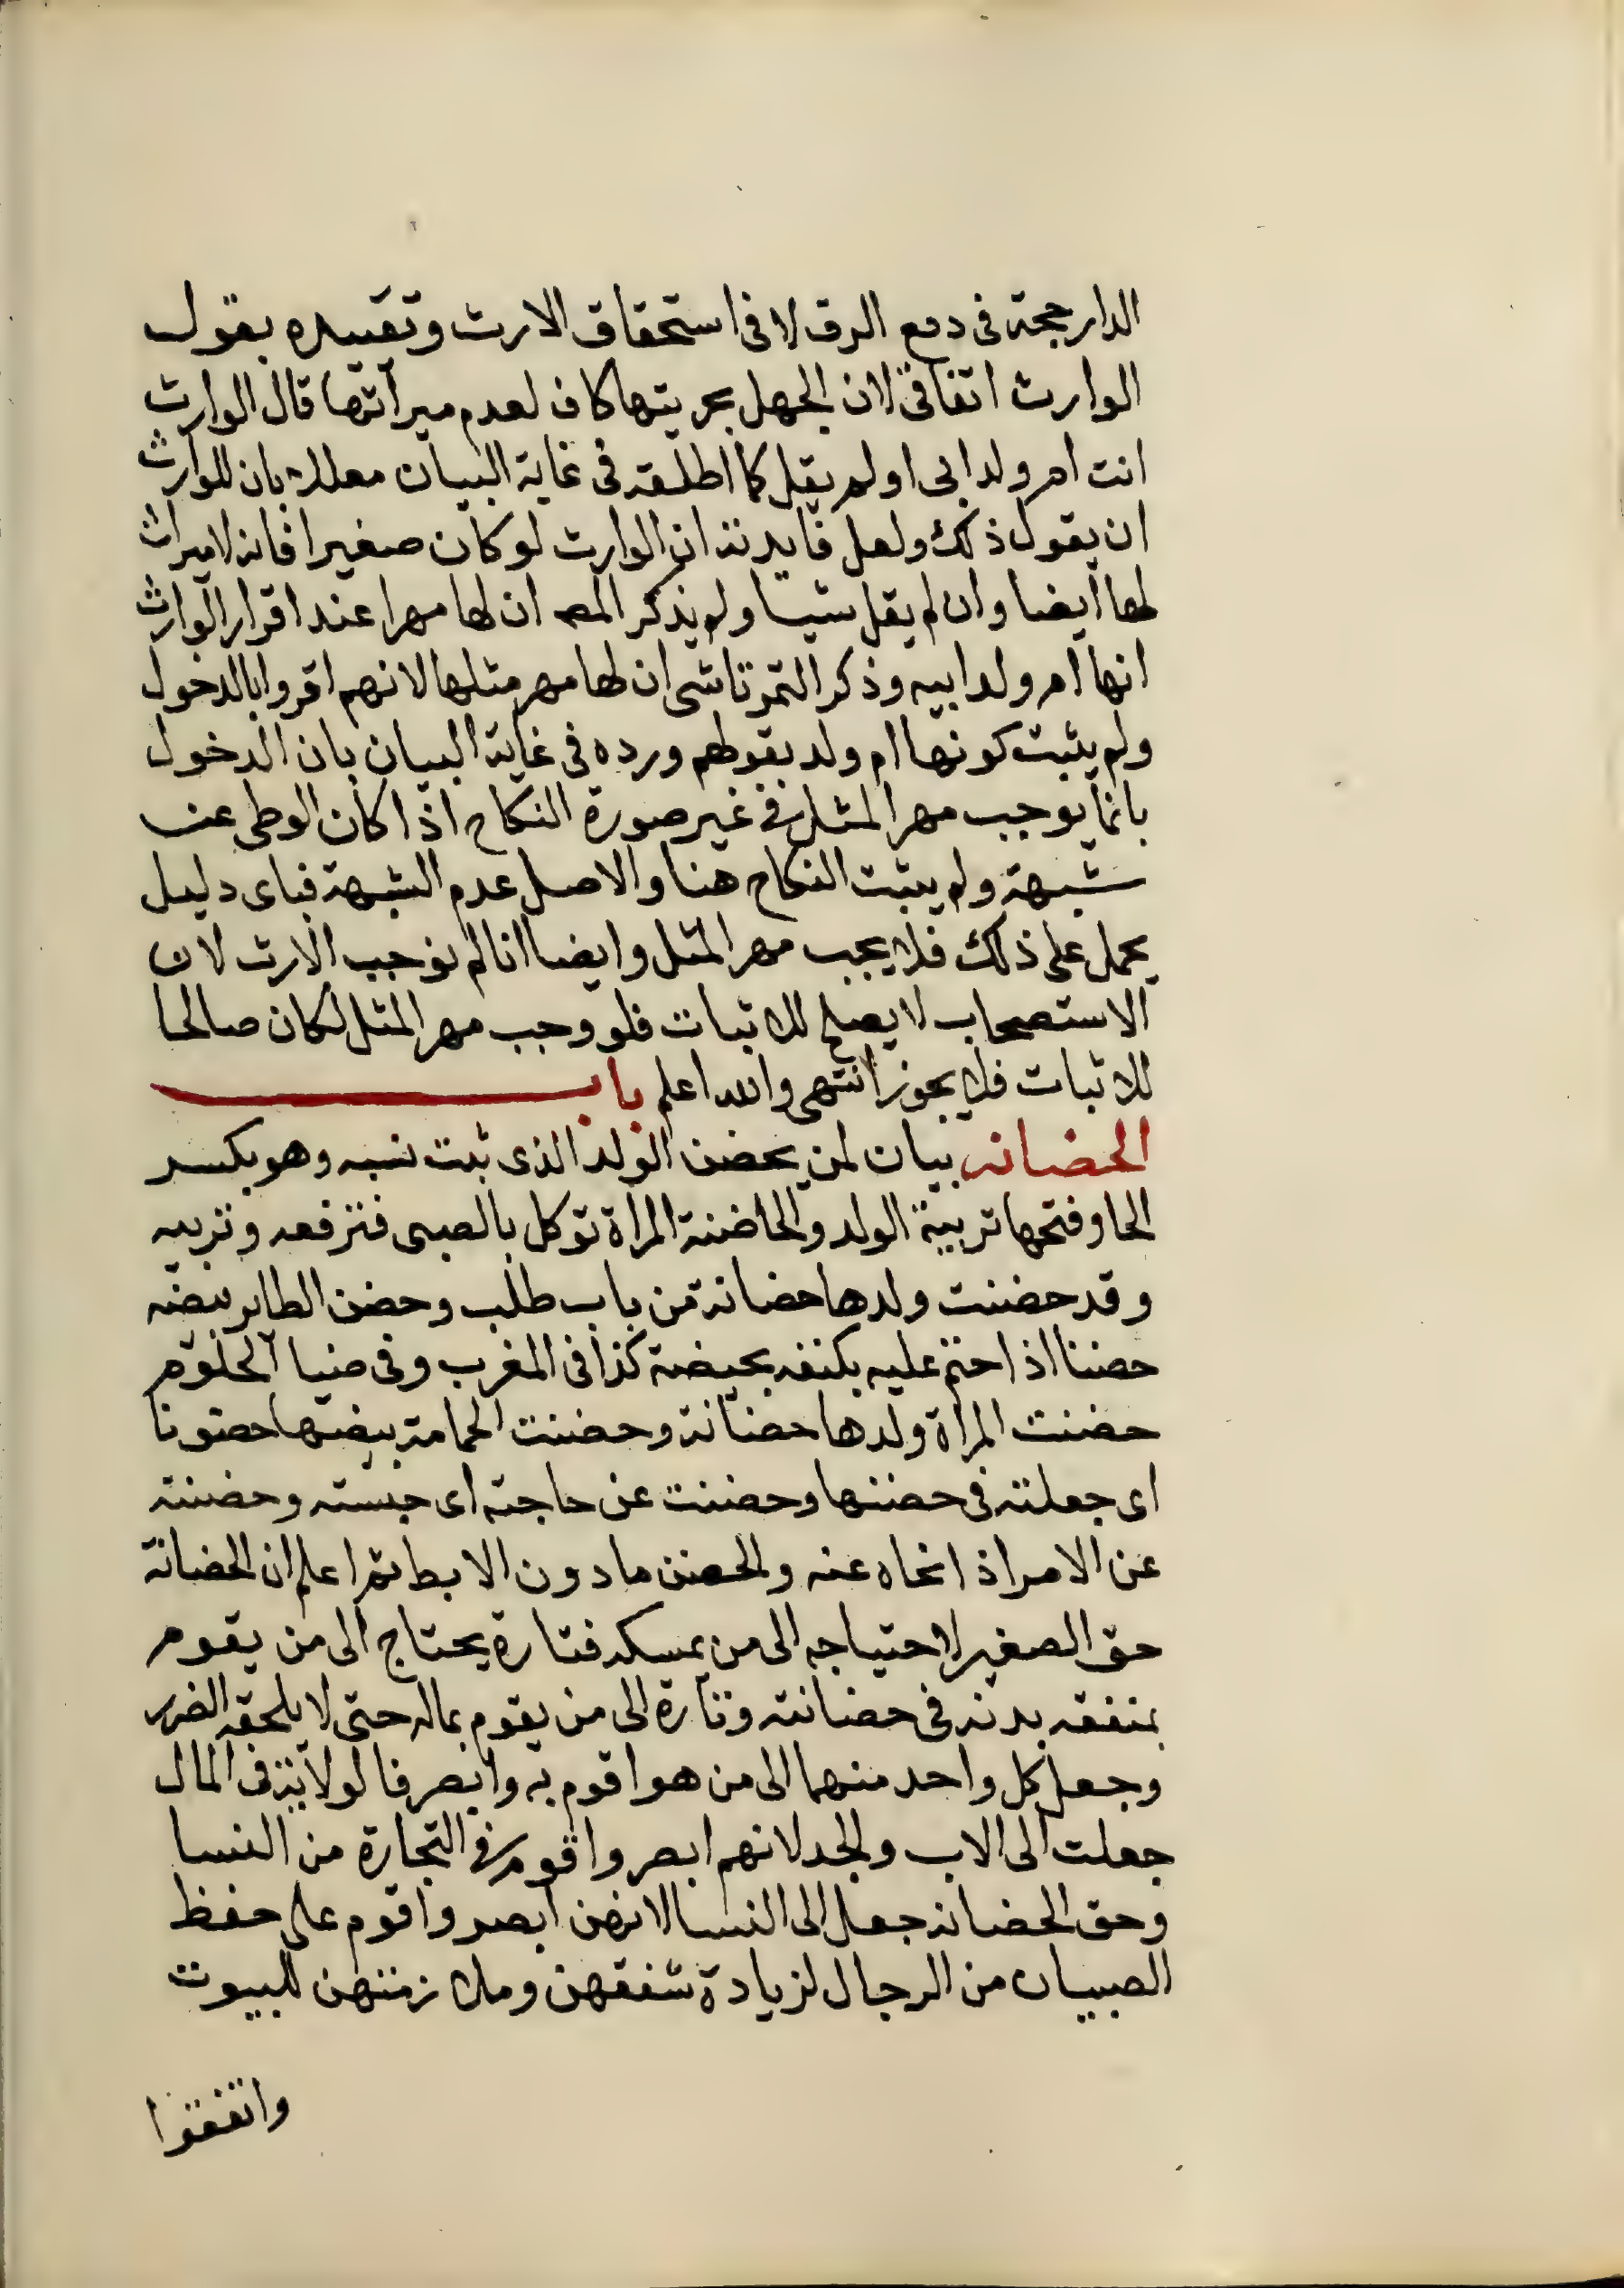 الدار حجة فى دفع الرق لا فى استحقاق الارث وتقييده بقول
الوارث اتفاقى لان الجهل بحريتها كاف لعدم ميراثها قال الوارث
انت ام ولد ابى او لم يقل كما اطلقه فى غاية البيان معللا بان للوارث
ان يقول ذلك ولعل فايدته ان الوارث لو كان صغيرا فانه لا ميراث
لها ايضا وان لم يقل شيا ولم يذكر المصه ان لها مهرا عند اقرار الوارث
انها ام ولد ابيه وذكر التمرتاشى ان لها مهر مثلها لانهم اقروا بالدخول
ولم يثبت كونها ام ولد بقولهم ورده فى غاية البيان بان الدخول
بانما يوجب مهر المثل فى غير صورة النكاح اذا كان الوطى عن
شبهة ولم يثبت النكاح هنا والاصل عدم الشبهة فباى دليل
يحمل على ذلك فلا يجب مهر المثل وايضا انا لم نوجب الارث لان
الاستصحاب لا يصلح للاثبات فلو وجب مهر المثل لكان صالحا
للاثبات فلا يجوز انتهى والله اعلم باب
الحضانه بيان لمن يحضن الولد الذى ثبت نسبه وهو بكسر
الحا وفتحها تربية الولد والحاضنة المراة توكل بالصبى فترفعه وتربيه
وقد حضنت ولدها حضانة من باب طلب وحضن الطاير بيضه
حضنا اذا حثم عليه بكنفه بحيضة كذا فى المغرب وفى ضيا الحلوم
حضنت المراة ولدها حضانة وحضنت الحمامة بيضها حضونا
اى جعلته فى حضنها وحضنت عن حاجته اى حبسته وحضنته
عن الامر اذ انحاه عنه والحضن ما دون الابط ثم اعلم ان الحضانة
حق الصغير لاحتياجه الى من يمسكه فتارة يحتاج الى من يقوم
بمنفقه بدنه فى حضانته وتارة الى من يقوم بماله حتى لا يلحقه الضرر
وجعل كل واحد منهما الى من هو اقوم به وابصر فالولاية فى المال
جعلت الى الاب والجد لانهم ابصر واقوم فى التجارة من النسا
وحق الحضانه جعل الى النسا لانهن ابصر واقوم على حفظ
الصبيان من الرجال لزيادة شفقهن وملازمتهن للبيوت
واتفقوا